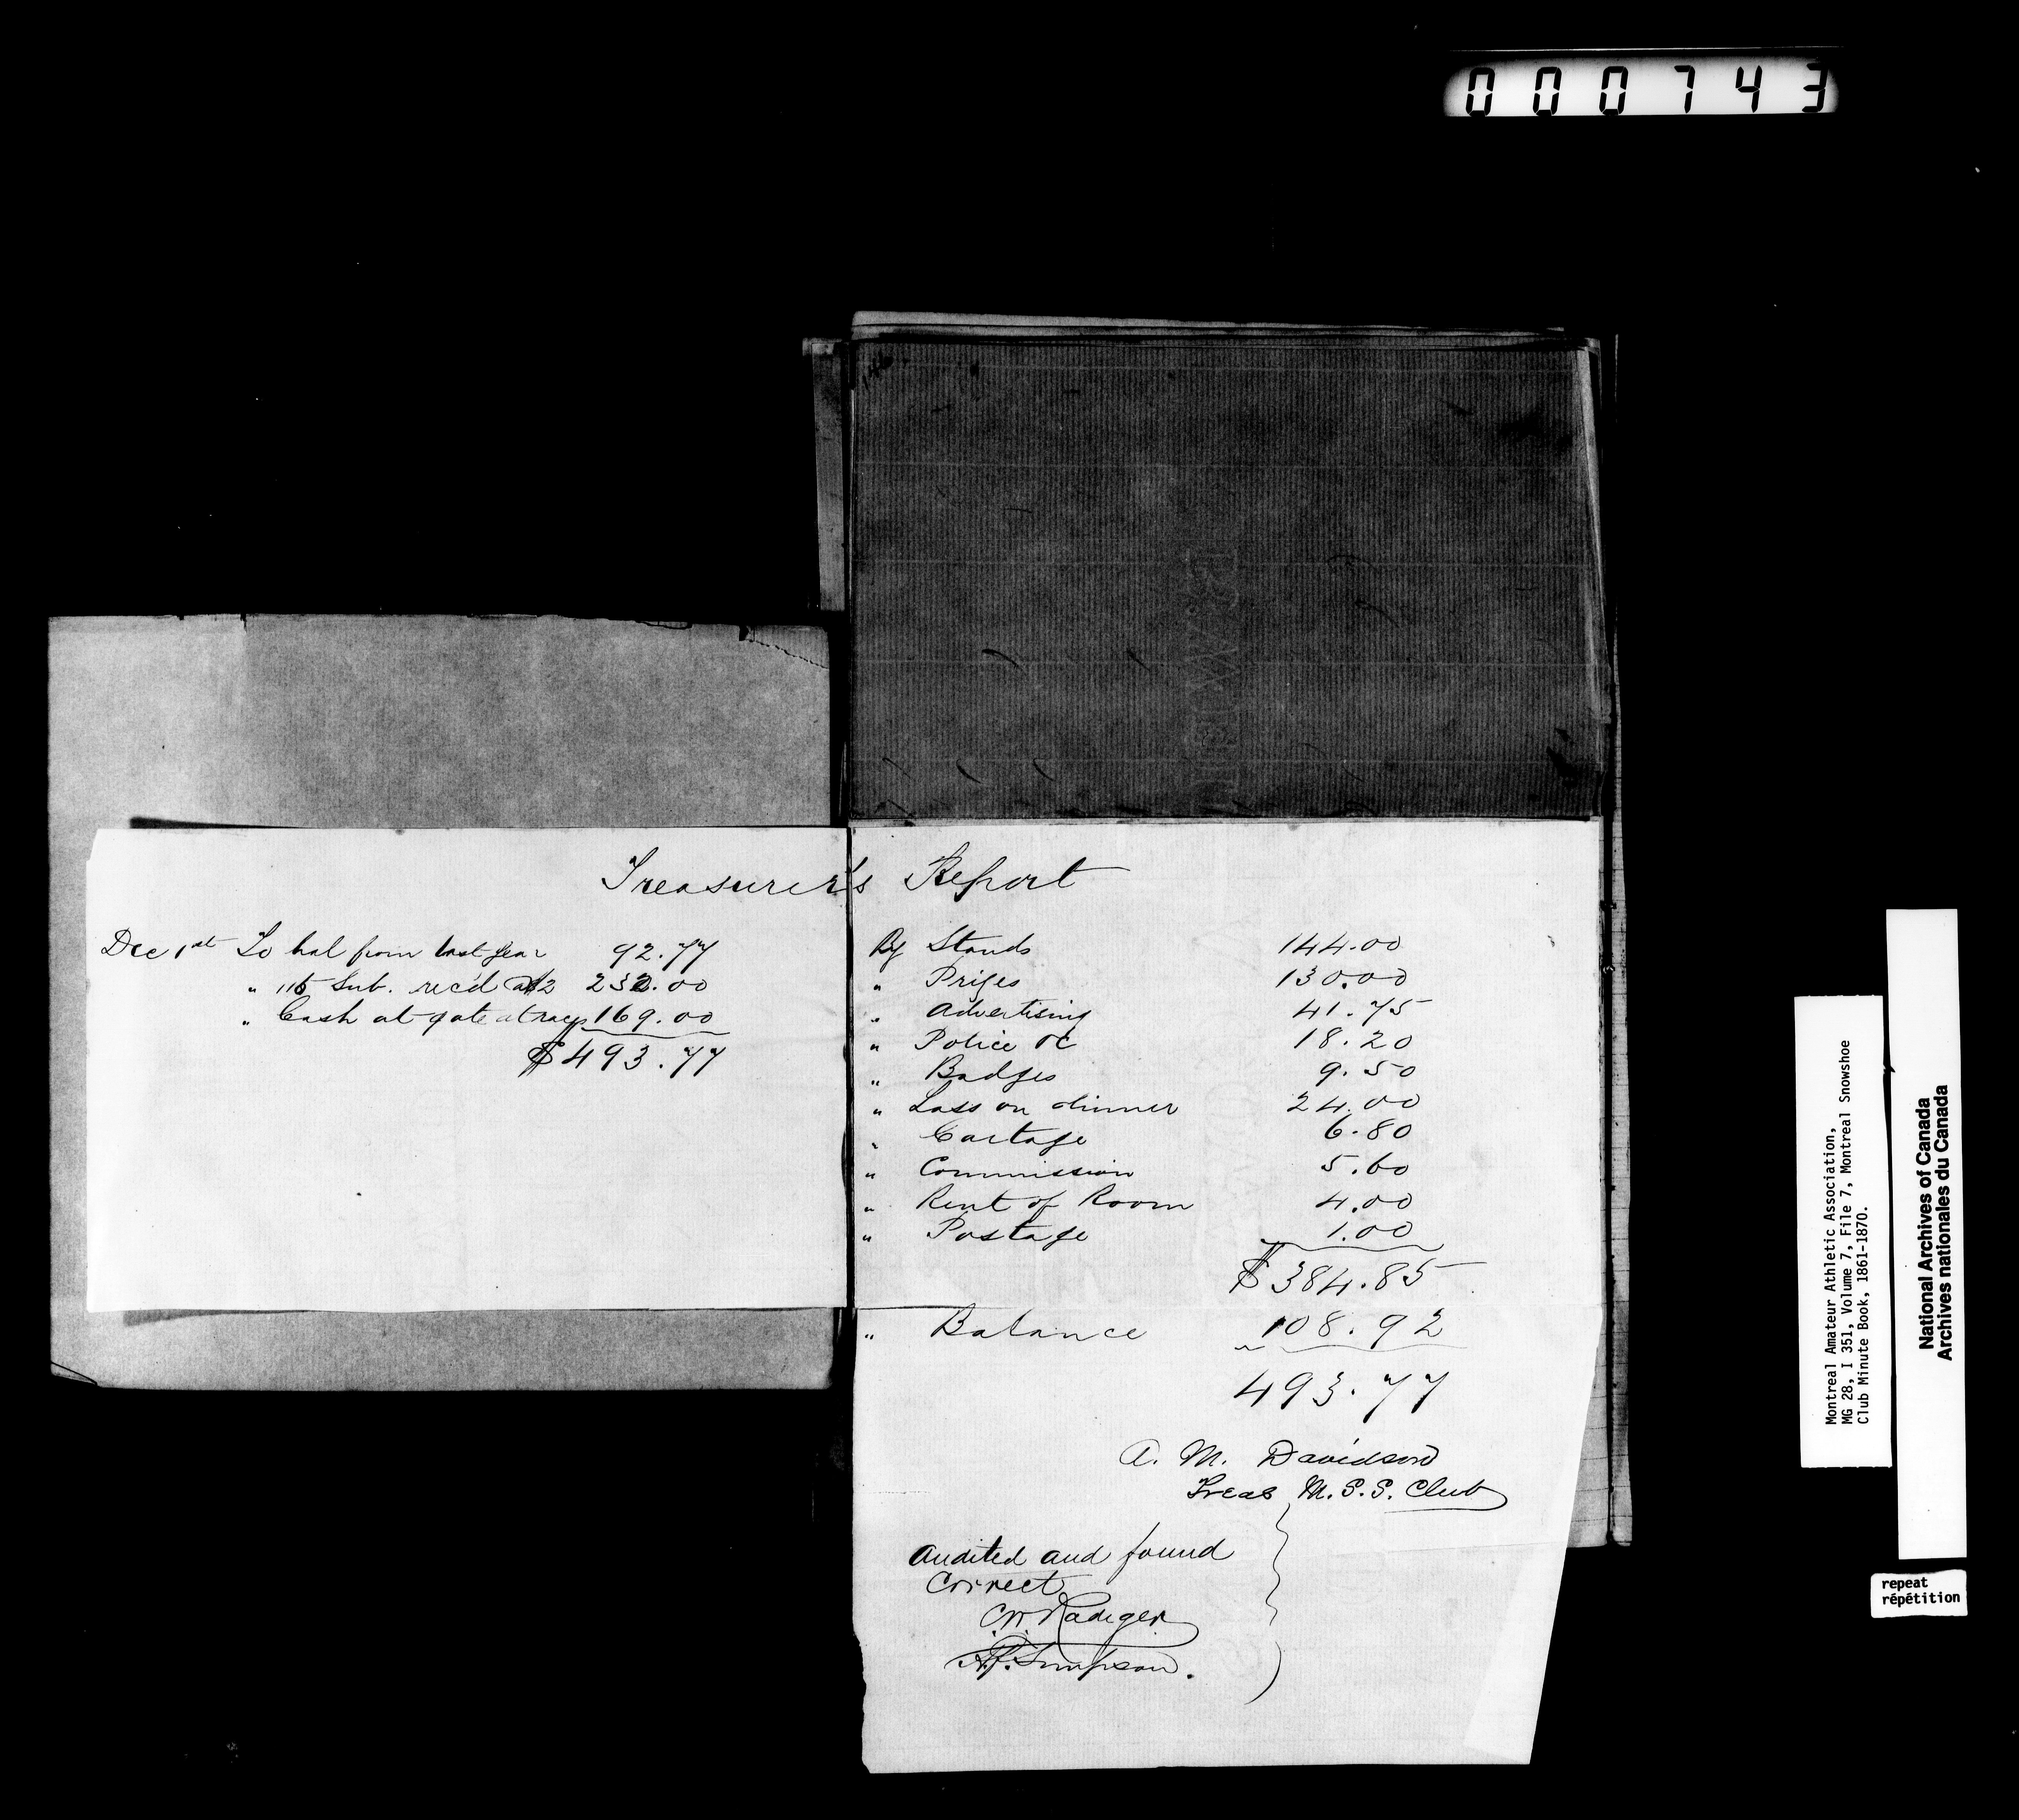 000743
Treasurer's Report
Dec 1st To bal from last year 92.77
" 116 Sub. rec'd at $2 232.00
" Cash at gate at races 169.00
$493.77
By Stands 144.00
" Prizes 130.00
" Advertising 41.75
" Police &c 18.20
" Badges 9.50
" Loss on dinner 24.00
" Cartage 6.80
" Commission 5.60
" Rent of Room 4.00
" Postage 1.00
$384.85
" Balance 108.92
493.77
A. M. Davidson
Treas M.S.S. Club
Audited and found
Correct
C.W. Radiger
Simpson.
Montreal Amateur Athletic Association,
MG 28, I 351, Volume 7, File 7, Montreal Snowshoe
Club Minute Book, 1861-1870.
National Archives of Canada
Archives nationales du Canada
repeat
répétition